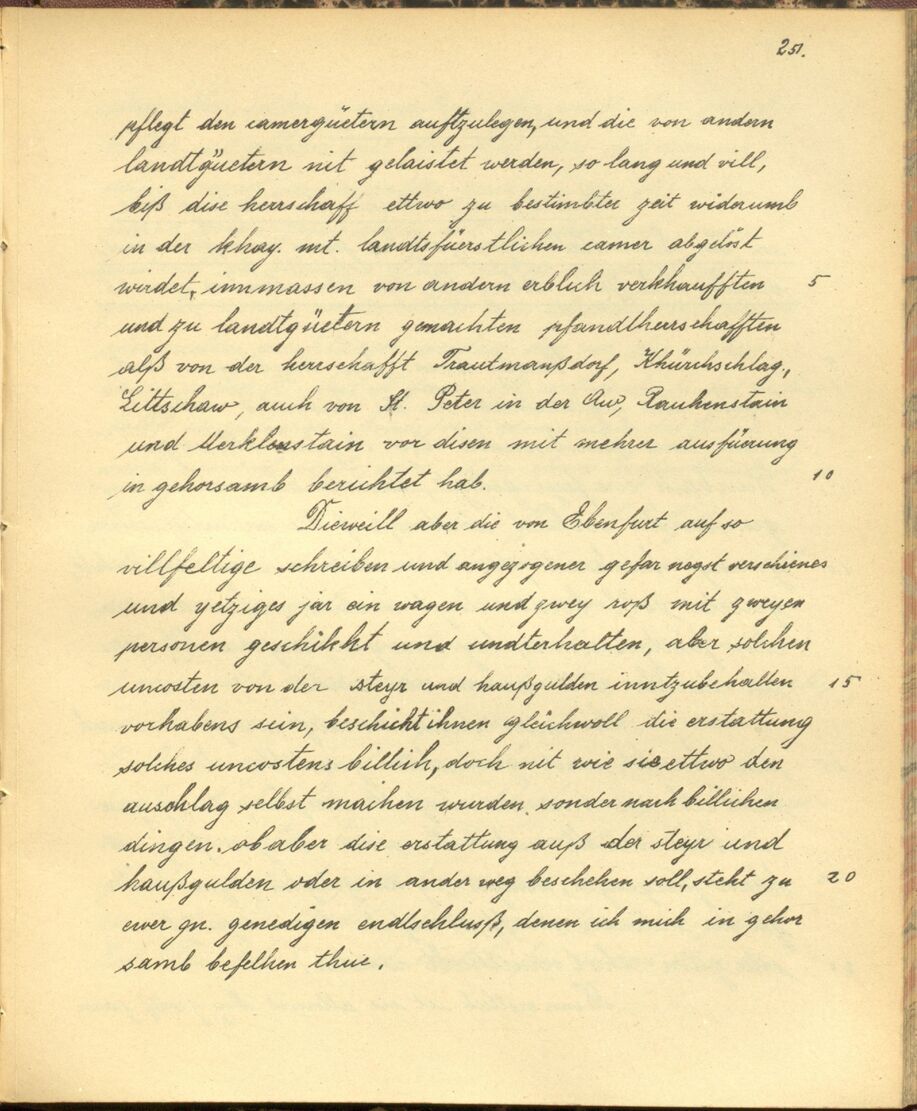 251.
pflegt den camergüetern aufzulegen, und die von andern
landtgüetern nit gelaistet werden, so lang und vill,
biß dise herrschaff ettwo zu bestimbter zeit widerumb
in der khay. mt. landtsfüerstlichen camer abgelöst
wirdet, innmassen von andern erblich verkhaufften 5
und zu landtgüetern gemachten pfandtherrschafften
alß von der herrschafft Trautmanßdorf, Khürchschlag,
Littschaw, auch von St. Peter in der Aw, Rauhenstain
und Merklenstain vor disen mit mehrer ausfüerung
in gehorsamb berichtet hab. 10
Dieweill aber die von Ebenfurt auf so
villfeltige schreiben und angezogener gefar negst verschienes
und yetziges jar ein wagen und zwey roß mit zweyen
personen geschikht und undterhalten, aber solchen
uncosten von der steyr und haußgulden inntzubehalten 15
vorhabens sein, beschicht ihnen gleichwoll die erstattung
solches uncostens billich, doch nit wie sie ettwo den
anschlag selbst maihen wurden, sonder nach billichen
dingen. ob aber dise erstattung auß der steyr und
haußgulden oder in ander weg beschehen soll, steht zu 20
ewer gn. genedigen endtschlusß, denen ich mich in gehor
samb befelhen thue.